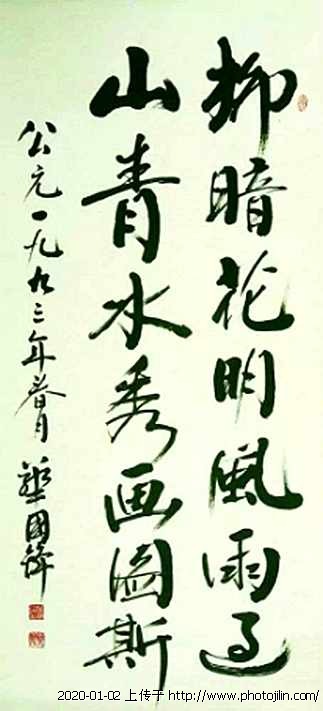 柳暗花明風雨過
山青水秀画图斯
公元一九九三年春月 華國鋒
2020-01-02 上传于 http://www.photojilin.com/